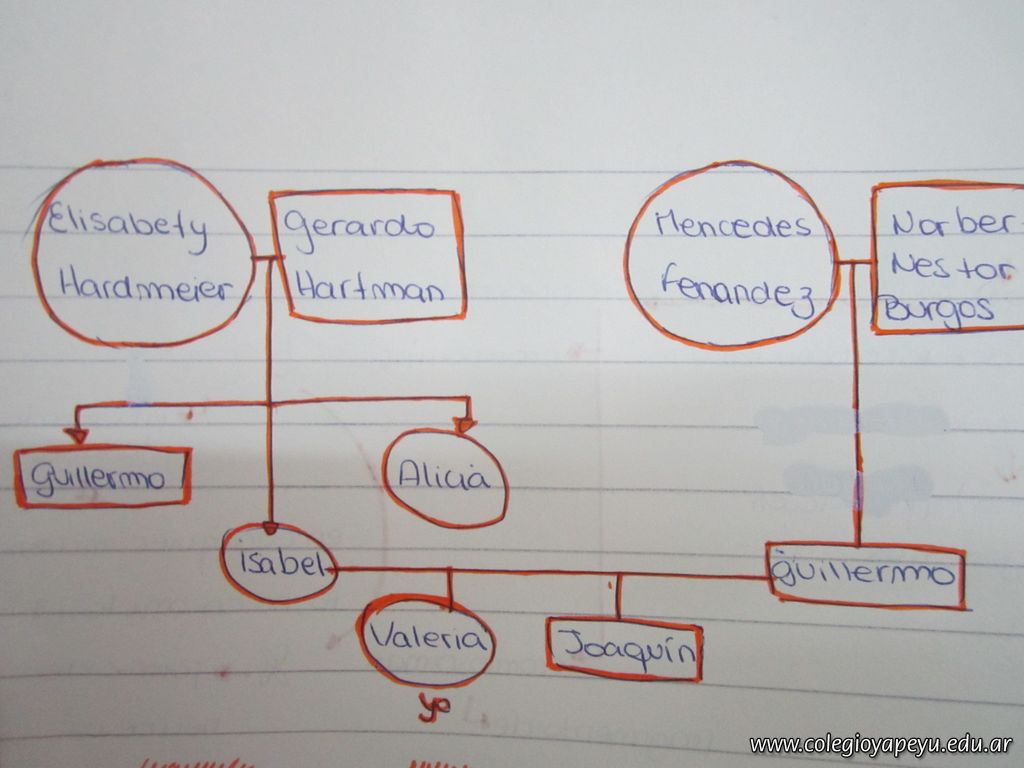 Elisabety
Hardmeier
Gerardo
Hartman
Mencedes
Fenandez
Norber
Nestor
Burgos
Guillermo
Alicia
isabel
Guillermo
Valeria
Joaquín
yo
www.colegioyapeyu.edu.ar